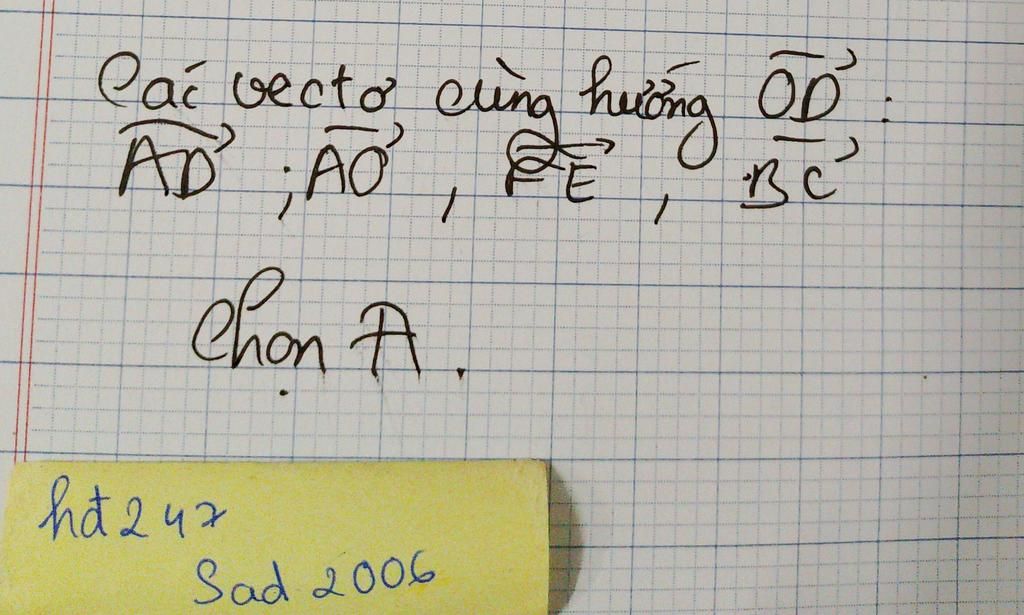 Các vectơ cùng hướng OD⃗ :
AD⃗ ; AO⃗ , FE⃗ , BC⃗
Chọn A .
hđ247
Sad 2006